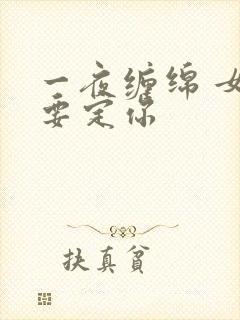 一夜缠绵 女
要定你
扶真貧